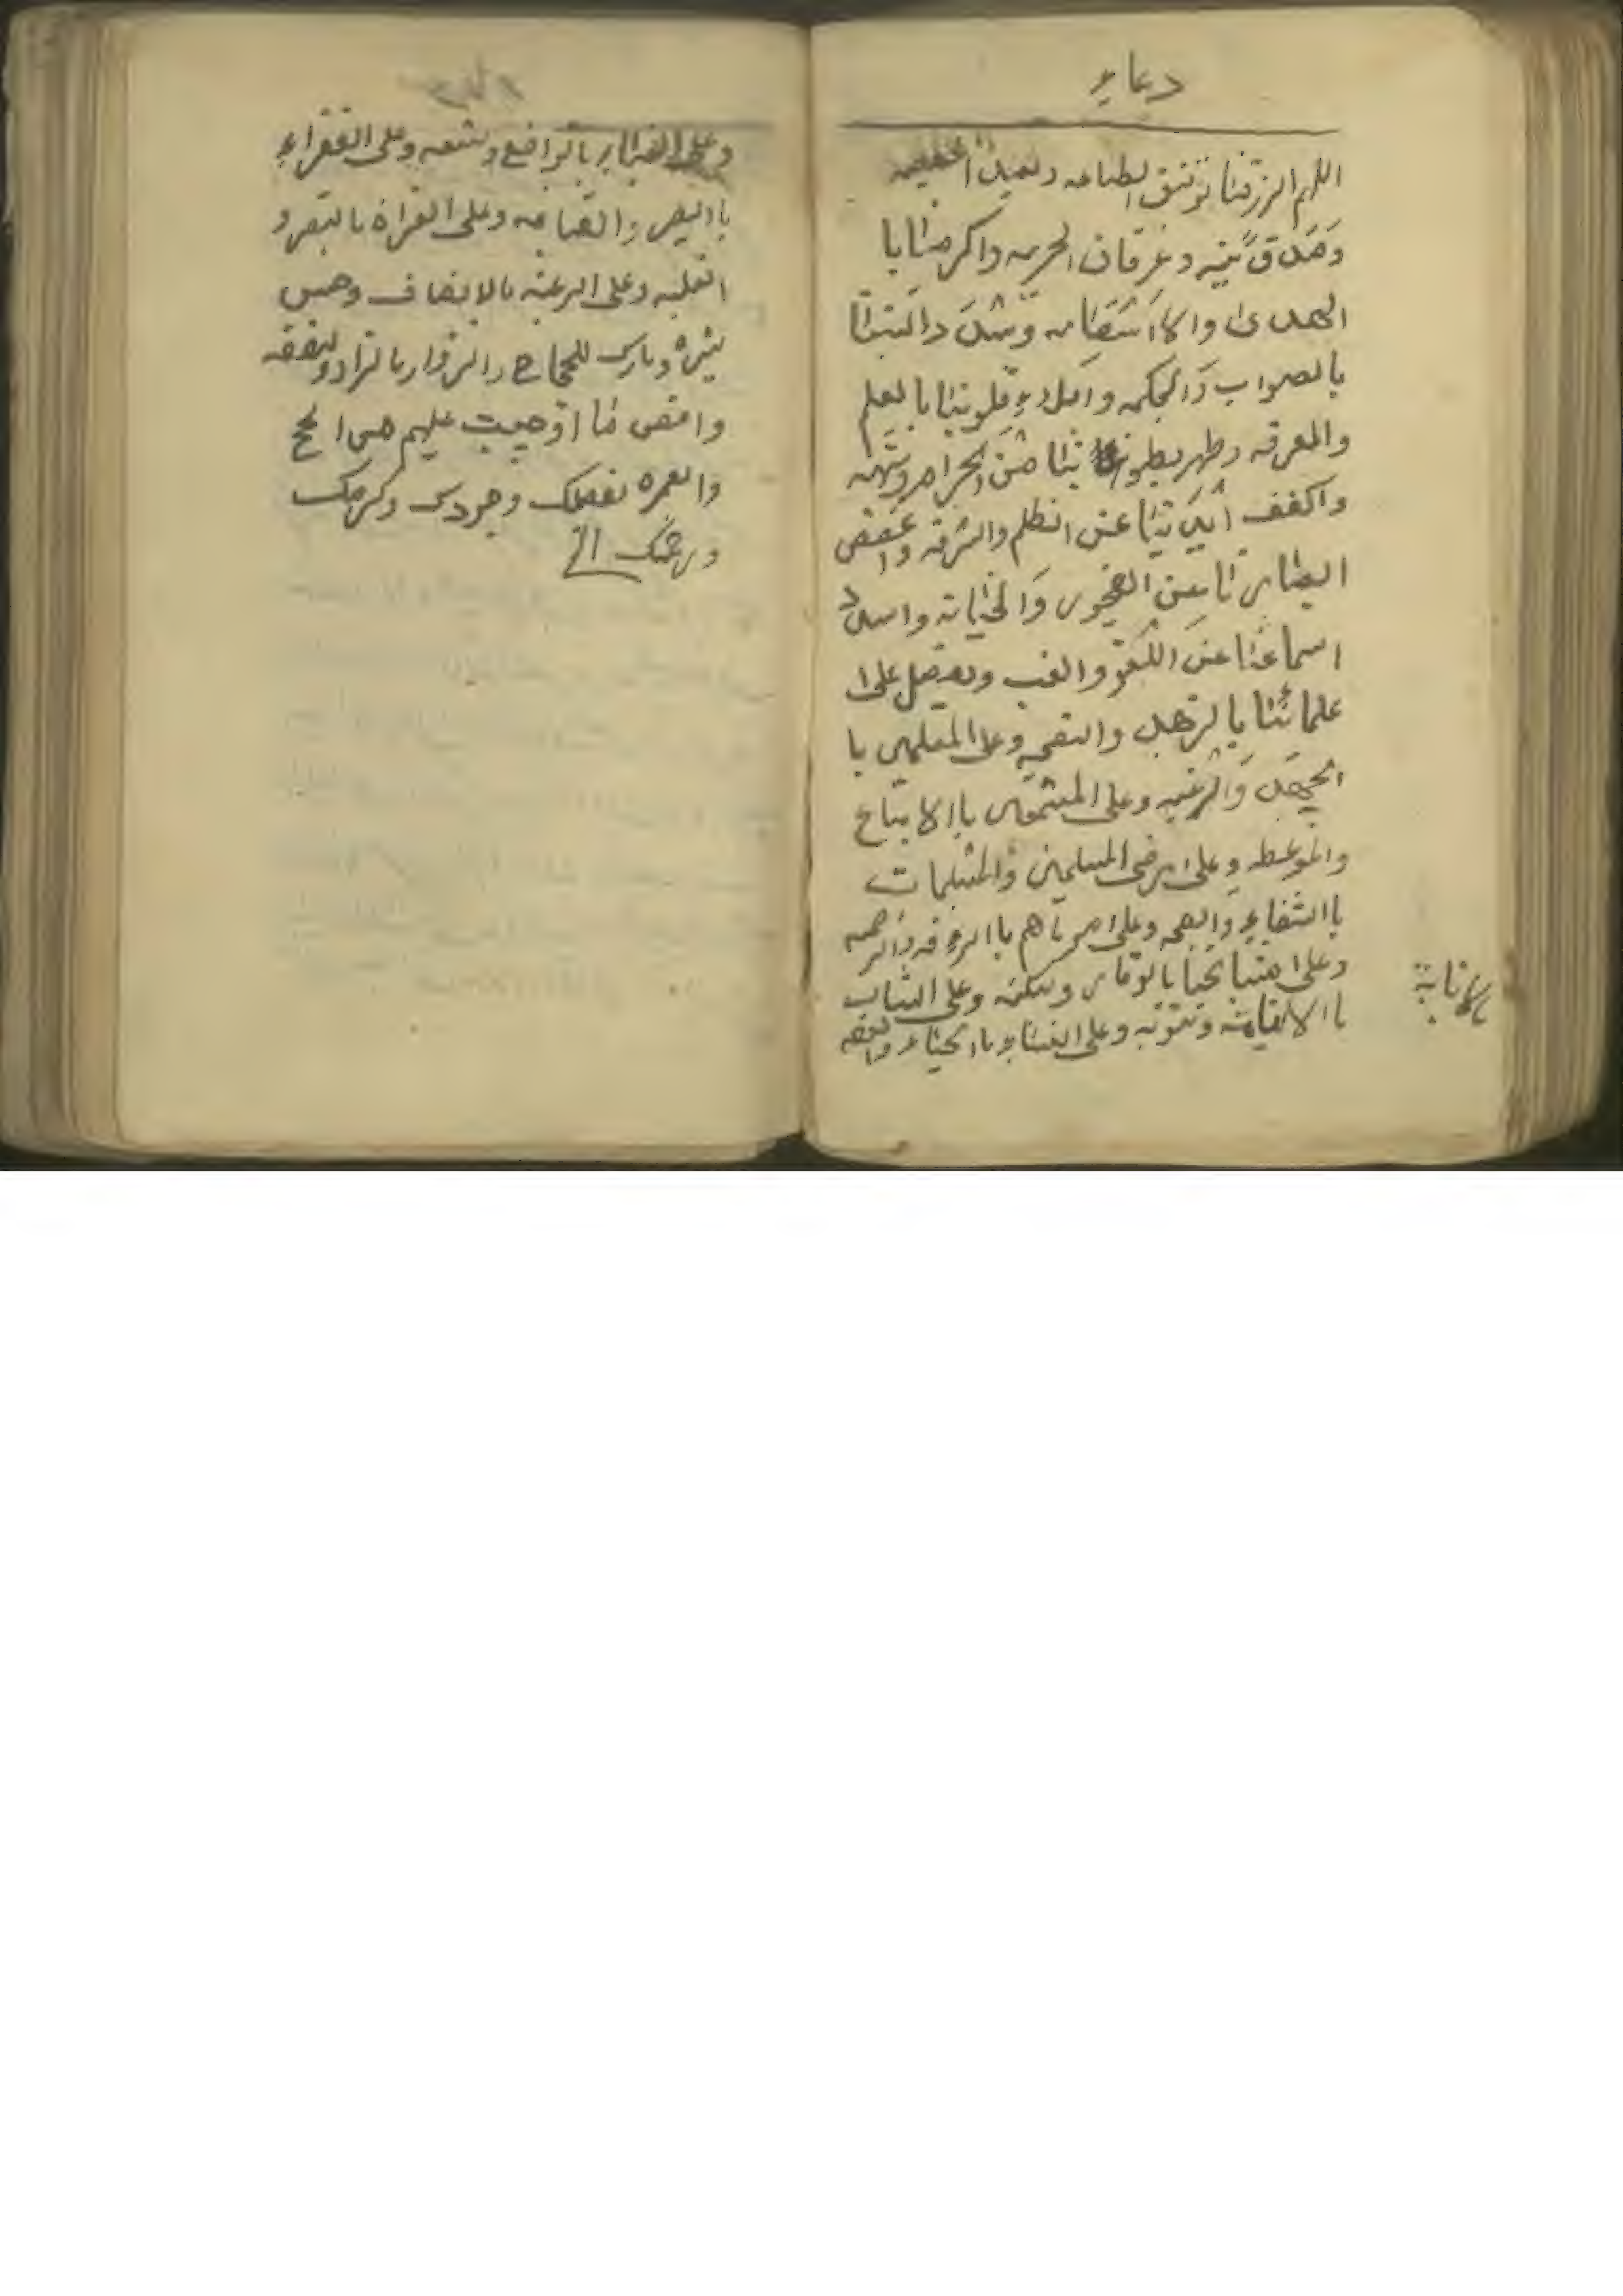 دعاء
اللهم الرزقنا توفيق لطاعه وبعيدا
وَصَدق نيّته وعرفان الحرمه واكرمنا با
الهدى والااستقامه وسَدَد السنتنا
بالصواب وَالحكمه واملاء قلوبنا بالعلم
والمعرفه وطهر بطوننا من الحرام وشبهه
واكفف ايَدينا عن الظلم والسرقه واغضض
ابصارنا عن الفجور وَالخيانه واسدد
اسماعنا عن اللغو والغيب وتفضل على
علمائنا بالزهد والنصحه وعلى المتعلمين با
الجهد وَالرغبه وعلى المستمعين باالاتباع
والموعظه وعلى مرضى المسلمين والمسلمات
باالشفاء والصحه وعلى موتاهم باالرءفه والرحمه
وعلى مشايخنا بالوقار وسكينه وعلى الشباب
باالانابه وتتوبه وعلى النساء باالحياء والعفه
باالانابة
وعلى الاغنياء بالتواضع وسعه وعلى الفقراء
باالصبر والقناعه وعلى الغزاة بالنصر و
الغلبه وعلى الرعيه بالانصاف وحسن
سيره وبارك للحجاج والزوار بالزاد ونفقه
واقض ما اوجبت عليهم من الحج
والعمره بفضلك وجودك وكرمك
ورحمتك الخ